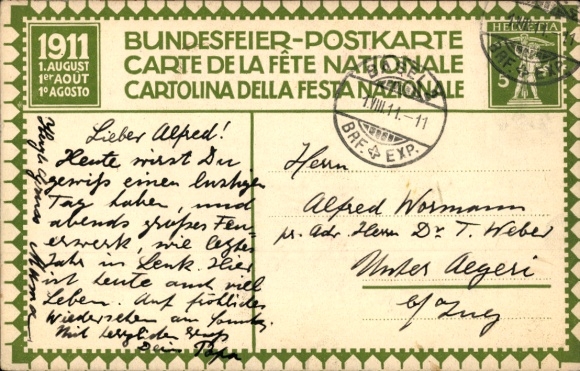 1911
1. AUGUST
1er AOÛT
1º AGOSTO
BUNDESFEIER-POSTKARTE
CARTE DE LA FÊTE NATIONALE
CARTOLINA DELLA FESTA NAZIONALE
HELVETIA
5
BASEL
1.VIII.11.-11
BRF. EXP.
BRF. EXP.
Lieber Alfred!
Heute wirst Du
gewiß einen lustigen
Tag haben, und
abends großes Feu-
erwerk, wie letztes
Jahr in Lenk. Hier
ist heute auch viel
Leben. Auf fröhliches
Wiedersehen am Sonntag.
Mit herzlichem Gruß
Dein Papa
Mama
Herrn
Alfred Wormann
pr. Adr. Herrn Dr. T. Weber
Unter Aegeri
b/ Zug